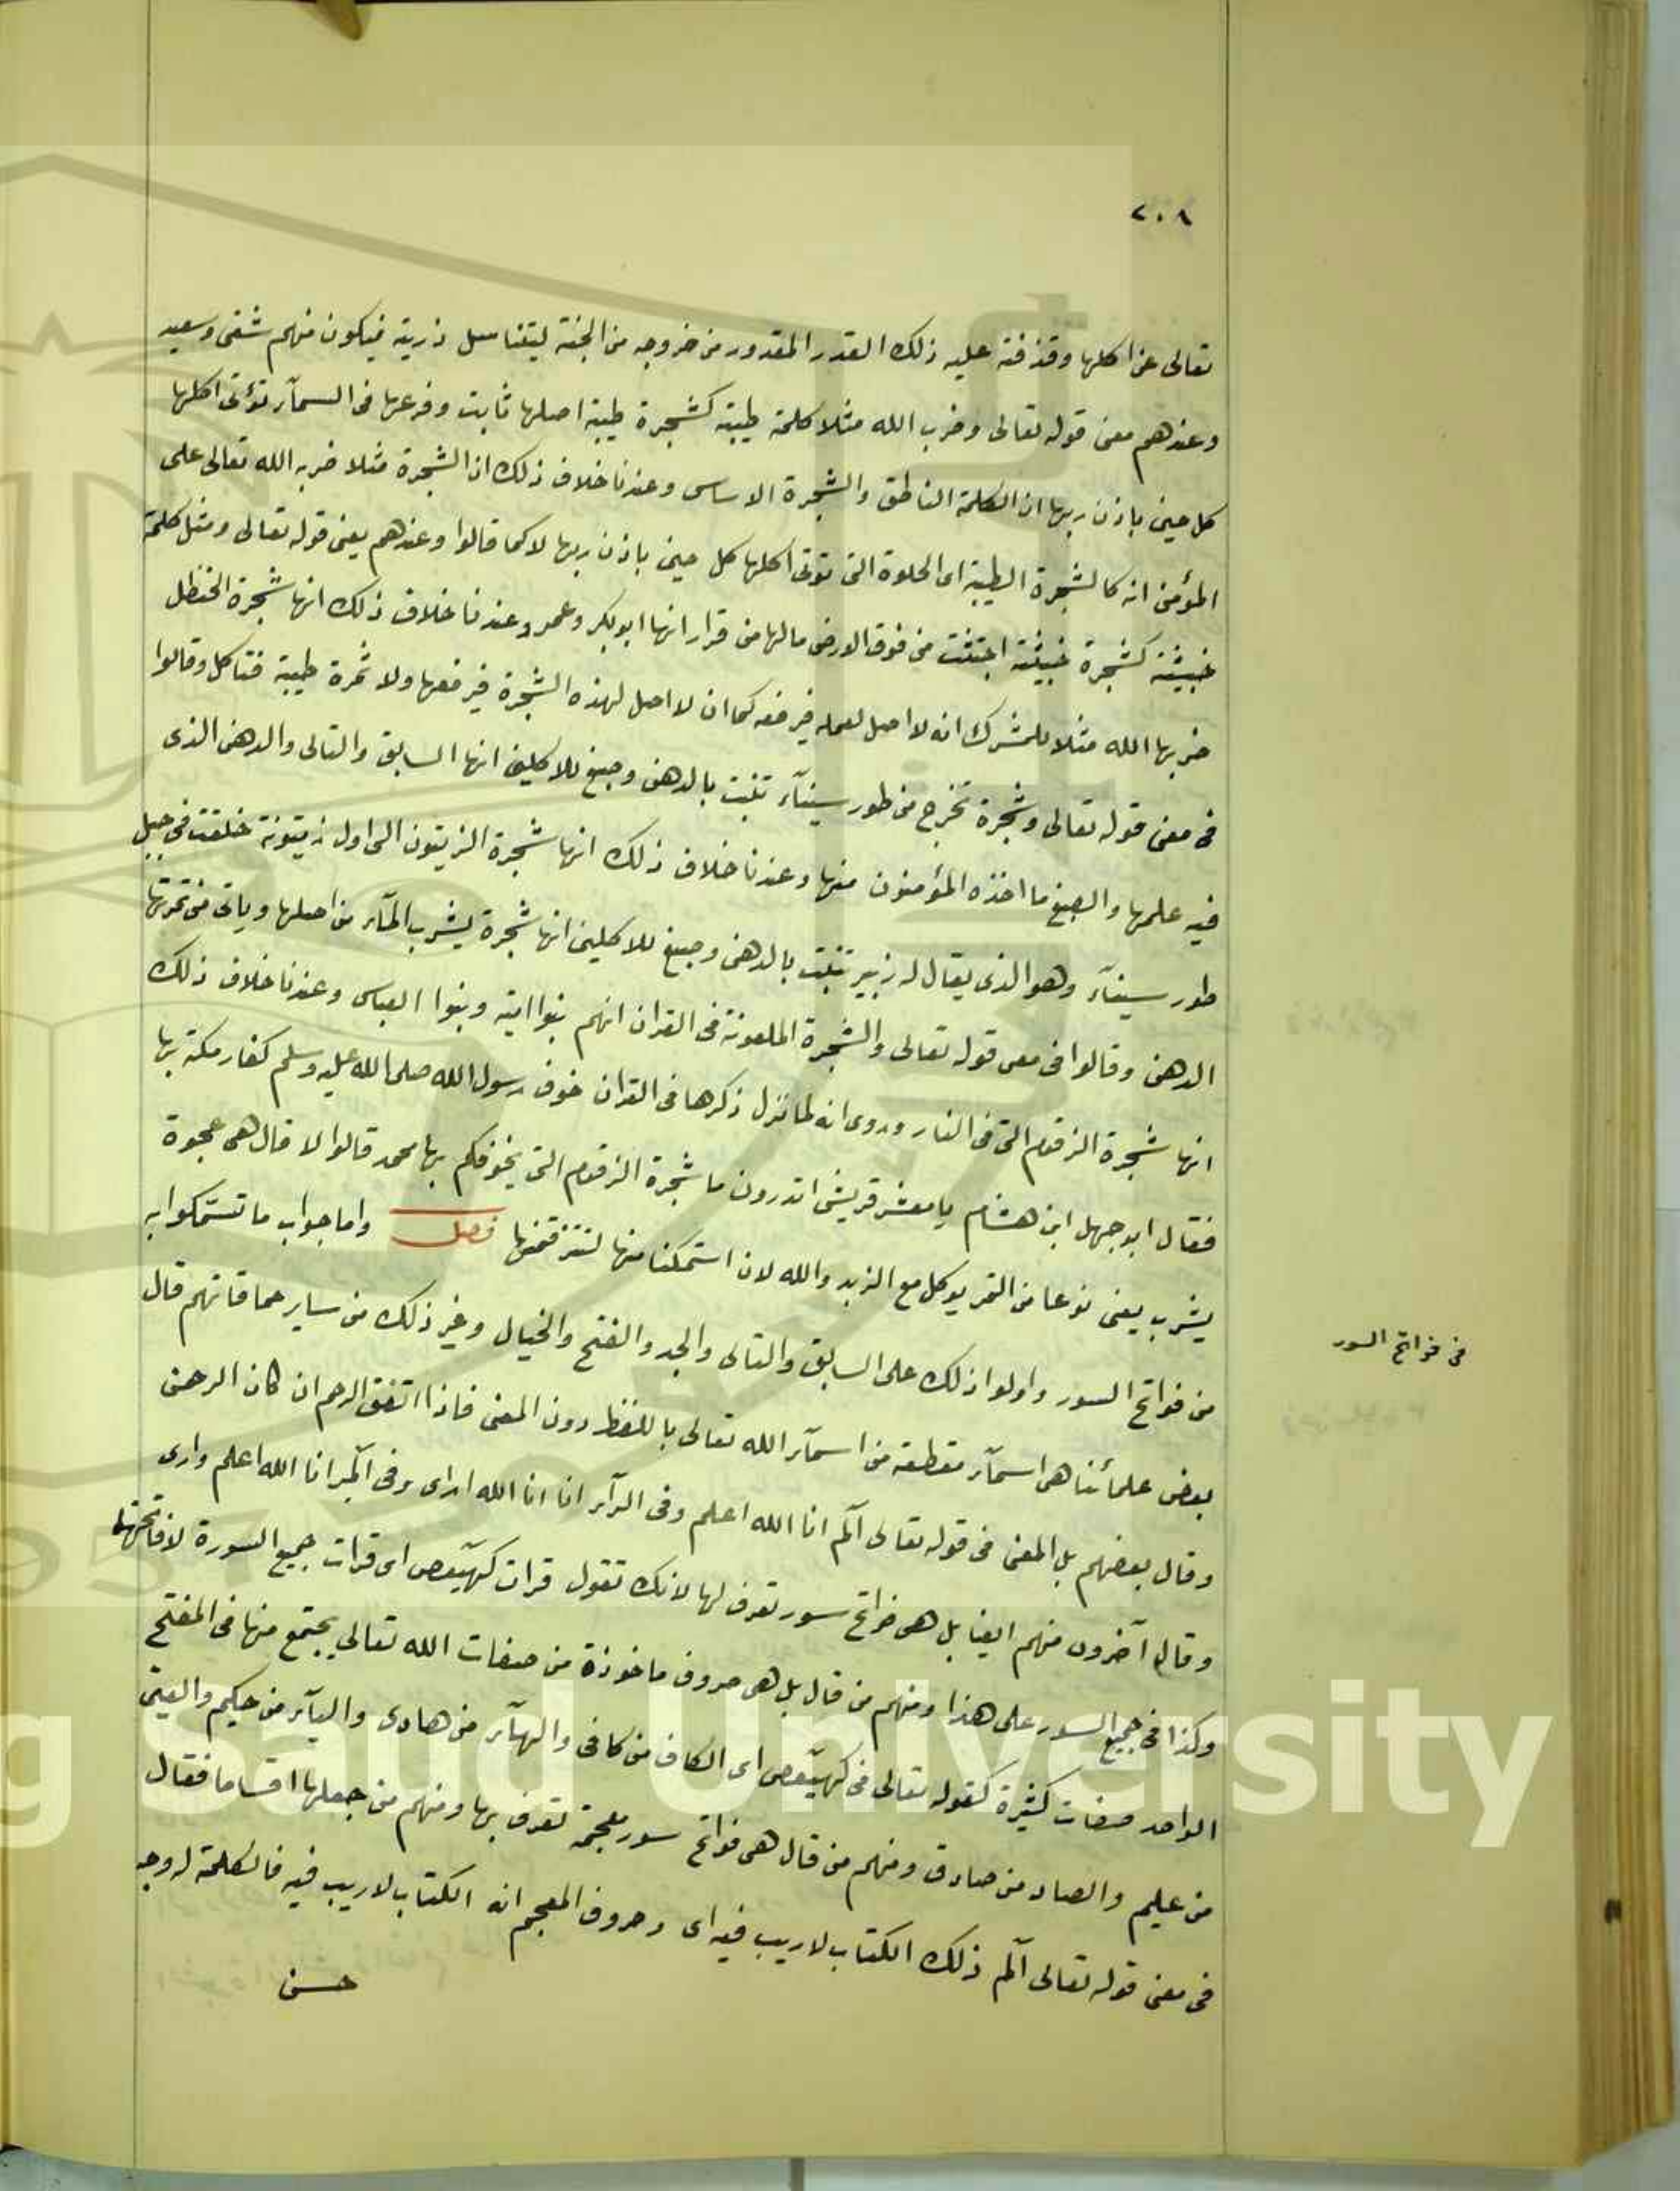 ٢٠٨
تعالى عن اكلها وقذفته عليه ذلك القدر المقدور من خروجه من الجنة ليتناسل ذريته فيكون منهم شقى وسعيد
وعندهم معنى قوله تعالى وضرب الله مثلا كلمة طيبة كشجرة طيبة اصلها ثابت وفرعها فى السمآء تؤتى اكلها
كل حين باذن ربها ان الكلمة الناطق والشجرة الاساس وعندنا خلاف ذلك ان الشجرة مثلا ضربه الله تعالى على
المؤمن انه كالشجرة الطيبة اى الحلوة التى تؤتى اكلها كل حين باذن ربها لا كما قالوا وعندهم يعنى قوله تعالى ومثل كلمة
خبيثة كشجرة خبيثة اجتثت من فوق الارض مالها من قرار انها ابو بكر وعمر وعندنا خلاف ذلك انها شجرة الحنظل
ضربها الله مثلا للمشرك انه لا اصل لعمله فيرفعه كما ان لا اصل لهذه الشجرة فيرفعها ولا ثمرة طيبة فتاكل وقالوا
فى معنى قوله تعالى وشجرة تخرج من طور سينآء تنبت بالدهن وصبغ للاكلين انها السابق والتالى والدهن الذى
فيه علمها والصبغ ما اخذه المؤمنون منها وعندنا خلاف ذلك انها شجرة الزيتون الى اول زيتونة خلقت فى جبل
طور سينآء وهو الذى يقال له زبير تنبت بالدهن وصبغ للاكلين انها شجرة يشرب المآء من اصلها وياتى من ثمرتها
الدهن وقالوا فى معنى قوله تعالى والشجرة الملعونة فى القران انهم بنوا امية وبنوا العباس وعندنا خلاف ذلك
انها شجرة الزقوم التى فى النار وروى انه لما نزل ذكرها فى القران خوف رسول الله صلى الله عليه وسلم كفار مكة بها
فقال ابو جهل ابن هشام يا معشر قريش اتدرون ما شجرة الزقوم التى يخوفكم بها محمد قالوا لا قال هى عجوة
يثرب يعنى نوعا من التمر يوكل مع الزبد والله لان استمكنا منها لنتزقمنها فصل واما جواب ما تستمكوا به
فى فواتح السور
من فواتح السور واولوا ذلك على السابق والتالى والجد والفتح والخيال وغير ذلك من ساير حماقاتهم قال
بعض علمائنا هى اسمآء مقطعة من اسمآء الله تعالى باللفظ دون المعنى فاذا اتفق الرحم ان كان الرحمن
وقال بعضهم بل المعنى فى قوله تعالى آلم انا الله اعلم وفى الرآء انا انا الله ارى وفى آلمر انا الله اعلم وارى
وقال آخرون منهم ايضا بل هى فواتح سور تعرف لها لانك تقول قرات كهيعص اى قرات جميع السورة لا فاتحتها
وكذا فى جميع السور على هذا ومنهم من قال بل هى حروف ماخوذة من صفات الله تعالى يجتمع منها فى المفتتح
الواحد صفات كثيرة كقوله تعالى فى كهيعص اى الكاف من كافى والهآء من هادى واليآء من حكيم والعين
من عليم والصاد من صادق ومنهم من قال هى فواتح سور معجمة تعرف بها ومنهم من جعلها اقساما فقال
فى معنى قوله تعالى آلم ذلك الكتاب لا ريب فيه اى وحروف المعجم انه الكتاب لا ريب فيه فالكلمة له وجه
حسن